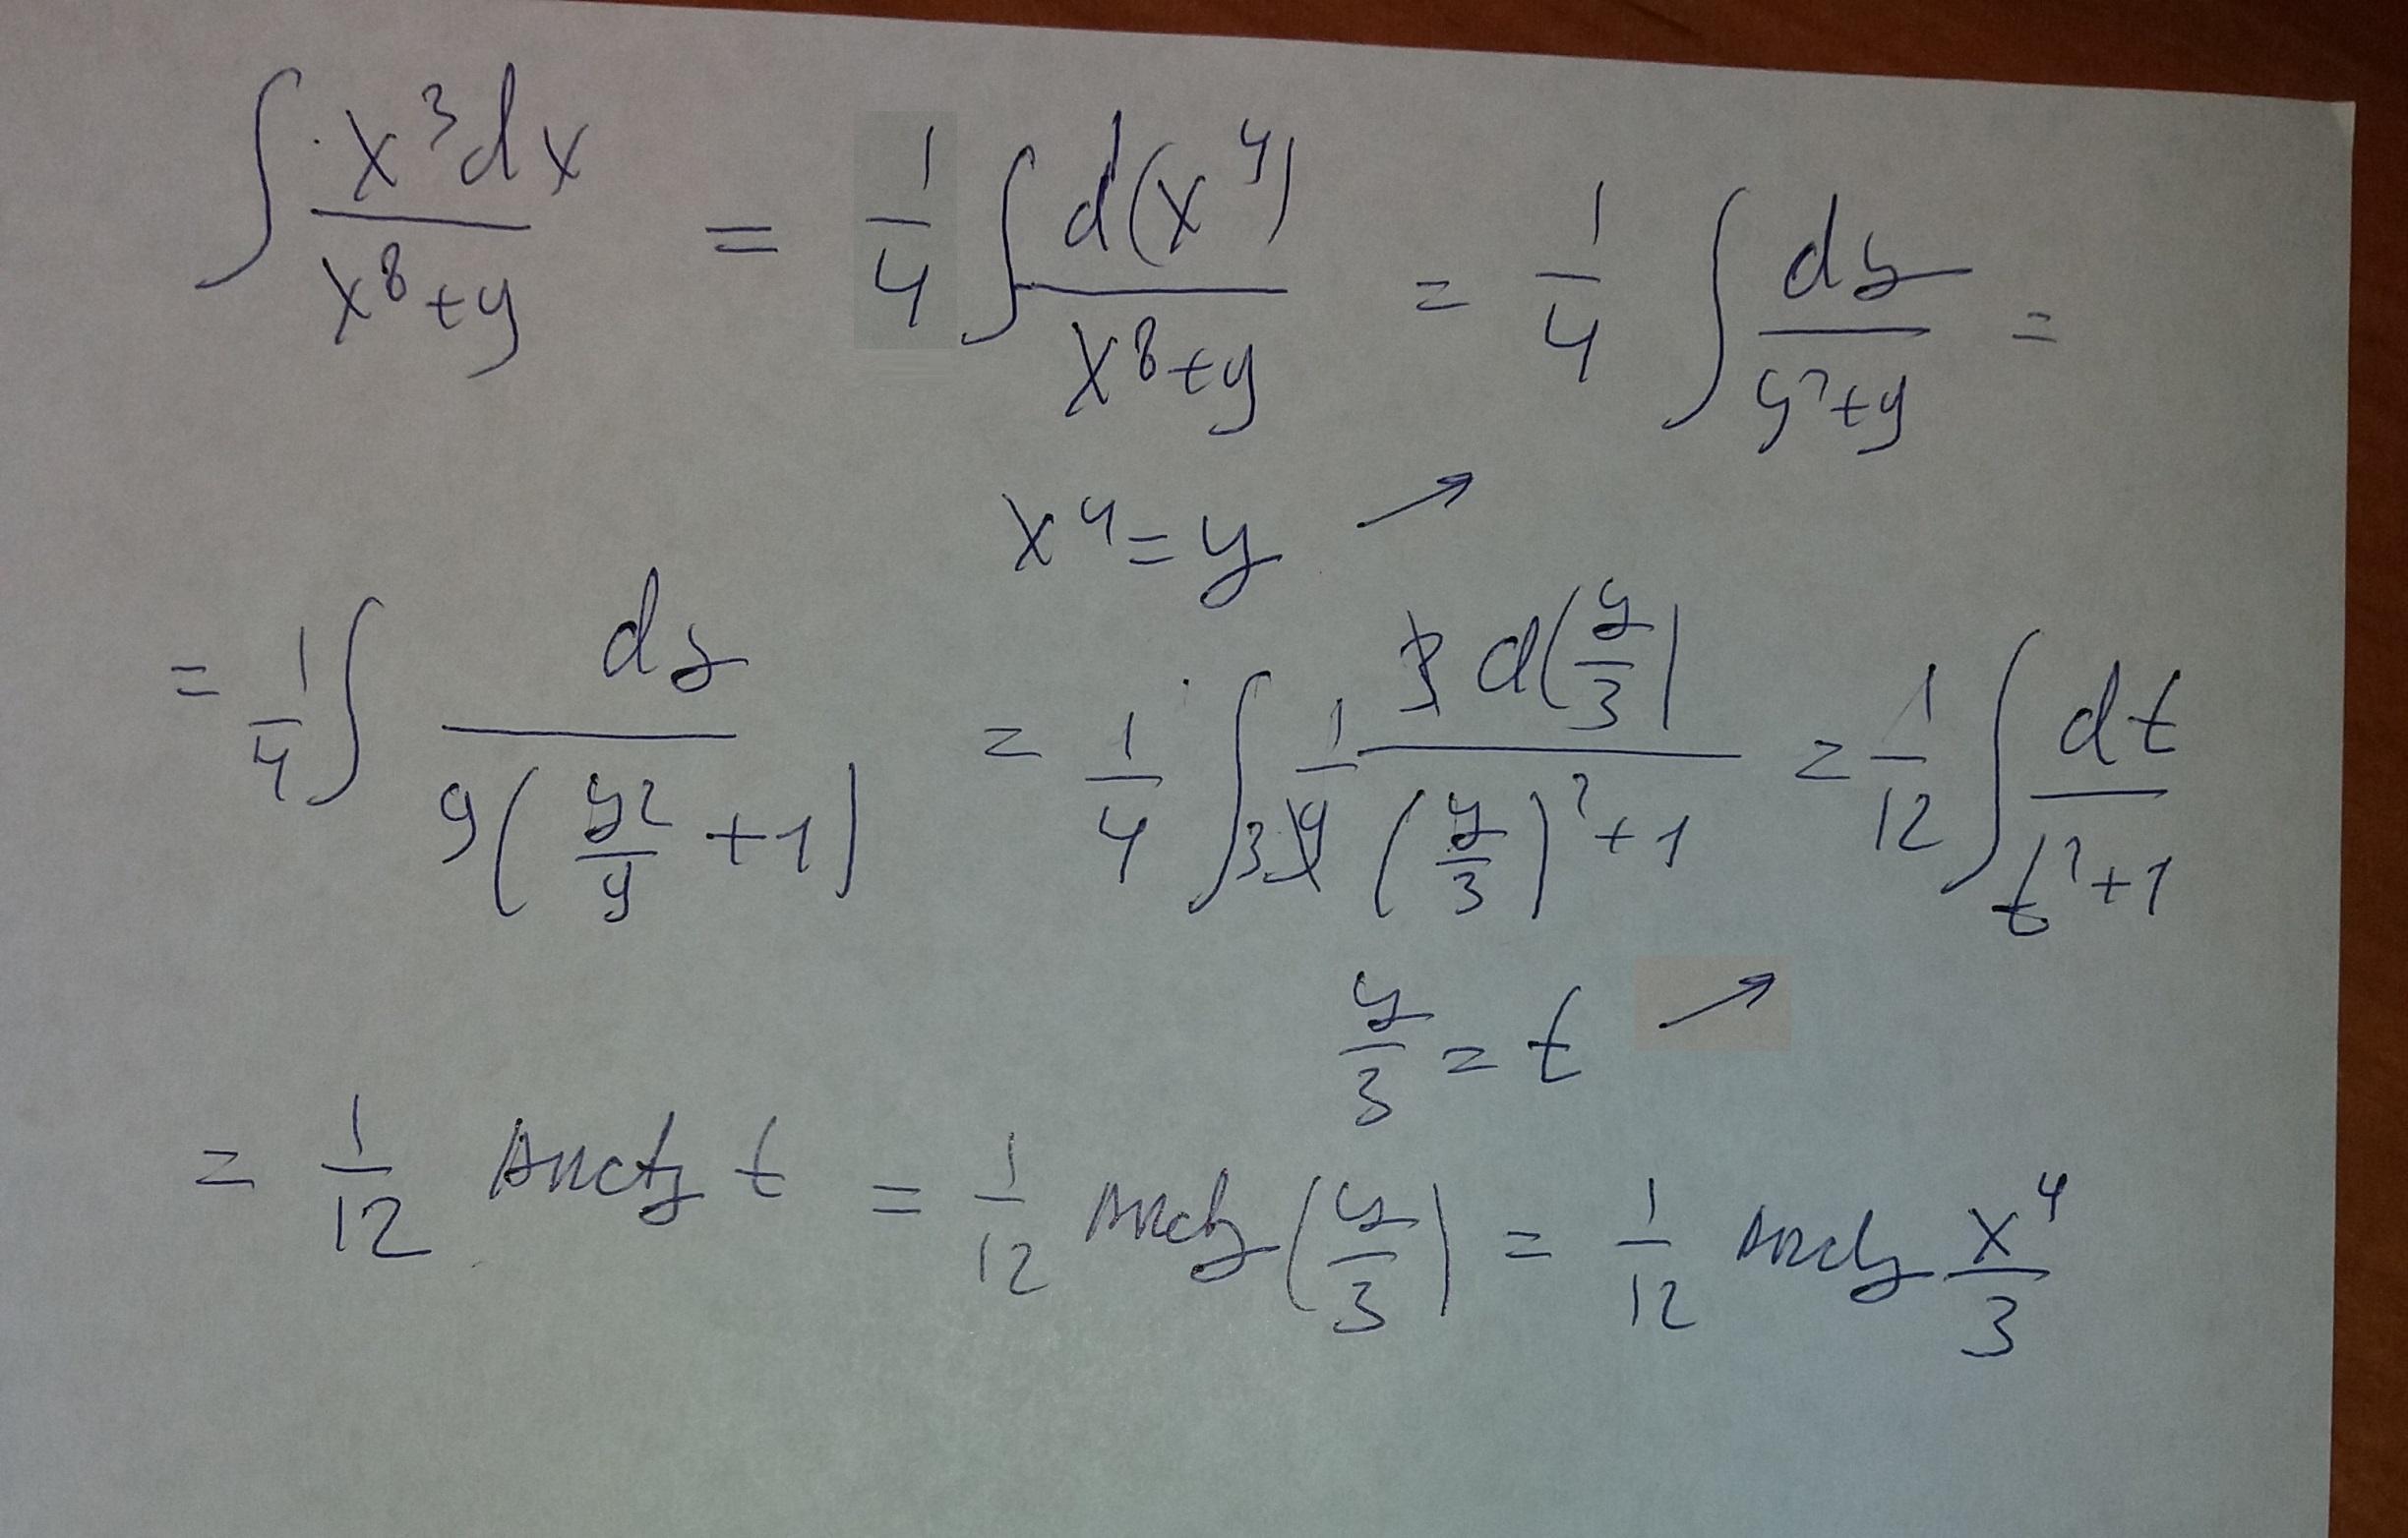 ∫ x³dx / (x⁸+9) = 1/4 ∫ d(x⁴) / (x⁸+9) = 1/4 ∫ dy / (y²+9) =
x⁴ = y ↗
= 1/4 ∫ dy / (9(y²/9 + 1)) = 1/4 ∫ 1/(3 9) 3 d(y/3) / ((y/3)² + 1) = 1/12 ∫ dt / (t²+1)
y/3 = t ↗
= 1/12 arctg t = 1/12 arctg (y/3) = 1/12 arctg x⁴/3